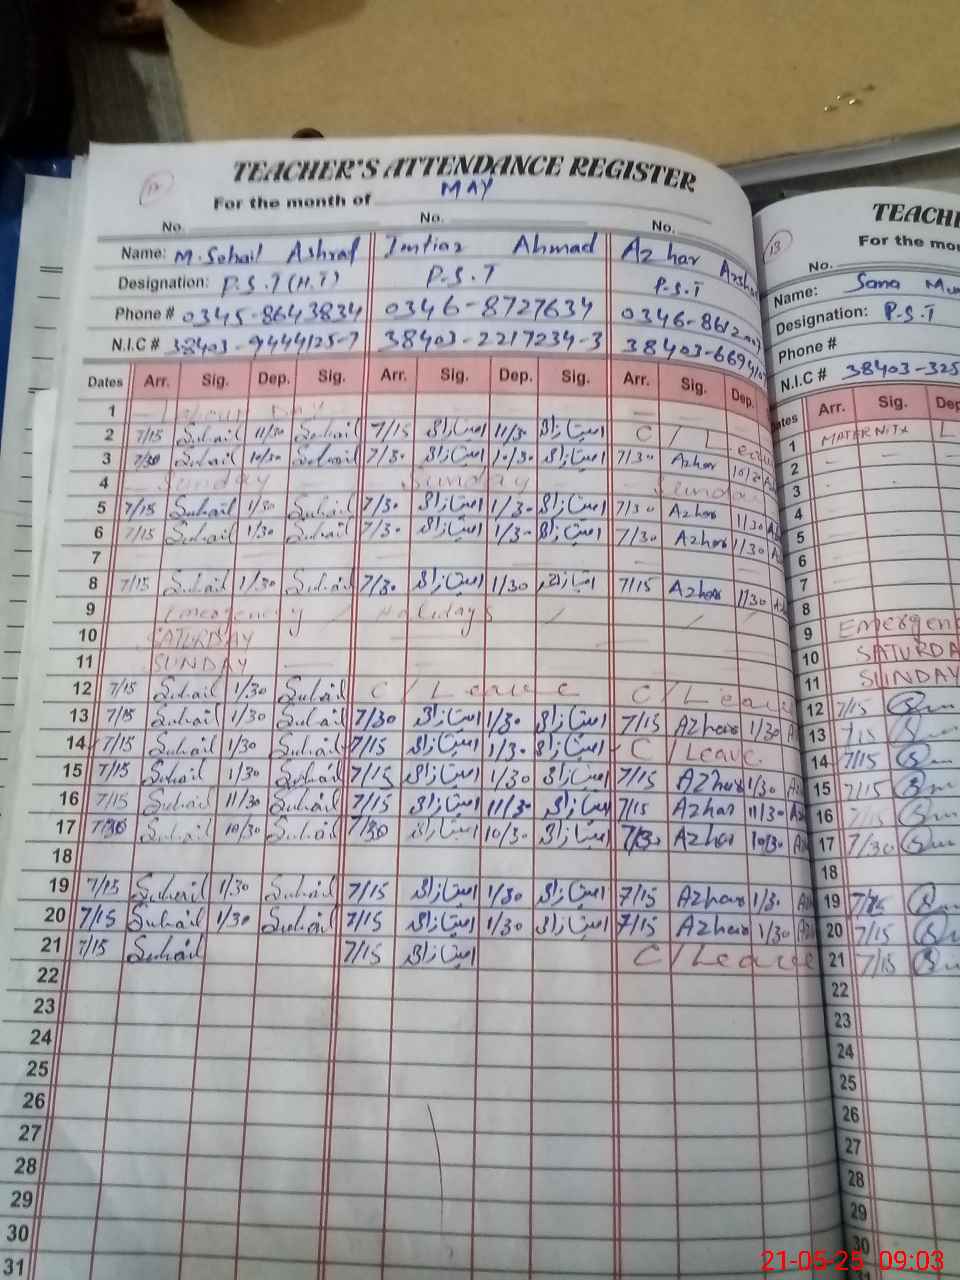 TEACHER'S ATTENDANCE REGISTER
12
For the month of MAY
No. No. No.
Name: M. Sohail Ashraf Imtiaz Ahmad Azhar
Designation: P.S.T (H.T) P.S.T P.S.T
Phone # 0345-8643834 0346-8727634 0346-8612
N.I.C # 38403-9444125-7 38403-2217234-3 38403-6694
Dates Arr. Sig. Dep. Sig. Arr. Sig. Dep. Sig. Arr. Sig. Dep.
1 Labour Day
2 7/15 Suhail 11/30 Suhail 7/15 امتیاز 11/30 امتیاز C/Leave
3 7/30 Suhail 10/30 Suhail 7/30 امتیاز 10/30 امتیاز 7/30 Azhar
4 Sunday Sunday Sunday
5 7/15 Suhail 1/30 Suhail 7/30 امتیاز 1/30 امتیاز 7/30 Azhar 1/30
6 7/15 Suhail 1/30 Suhail 7/30 امتیاز 1/30 امتیاز 7/30 Azhar 1/30
7
8 7/15 Suhail 1/30 Suhail 7/30 امتیاز 1/30 امتیاز 7/15 Azhar 1/30
9 Emergency / Holidays
10 SATURDAY
11 SUNDAY
12 7/15 Suhail 1/30 Suhail C/Leave C/Leave
13 7/15 Suhail 1/30 Suhail 7/30 امتیاز 1/30 امتیاز 7/15 Azhar 1/30
14 7/15 Suhail 1/30 Suhail 7/15 امتیاز 1/30 امتیاز C/Leave
15 7/15 Suhail 1/30 Suhail 7/15 امتیاز 1/30 امتیاز 7/15 Azhar 1/30
16 7/15 Suhail 11/30 Suhail 7/15 امتیاز 11/30 امتیاز 7/15 Azhar 11/30
17 7/30 Suhail 10/30 Suhail 7/30 امتیاز 10/30 امتیاز 7/30 Azhar 10/30
18
19 7/15 Suhail 1/30 Suhail 7/15 امتیاز 1/30 امتیاز 7/15 Azhar 1/30
20 7/15 Suhail 1/30 Suhail 7/15 امتیاز 1/30 امتیاز 7/15 Azhar 1/30
21 7/15 Suhail 7/15 امتیاز C/Leave
22
23
24
25
26
27
28
29
30
31
TEACH
13
For the mo
No.
Name: Sana
Designation: P.S.T
Phone #
N.I.C # 38403-325
ates Arr. Sig. De
1 MATERNITY L
2
3
4
5
6
7
8
9 Emergen
10 SATURDA
11 SUNDAY
12 7/15
13 7/15
14 7/15
15 7/15
16 7/15
17 7/30
18
19 7/15
20 7/15
21 7/15
22
23
24
25
26
27
28
29
30
21-05-25 09:03